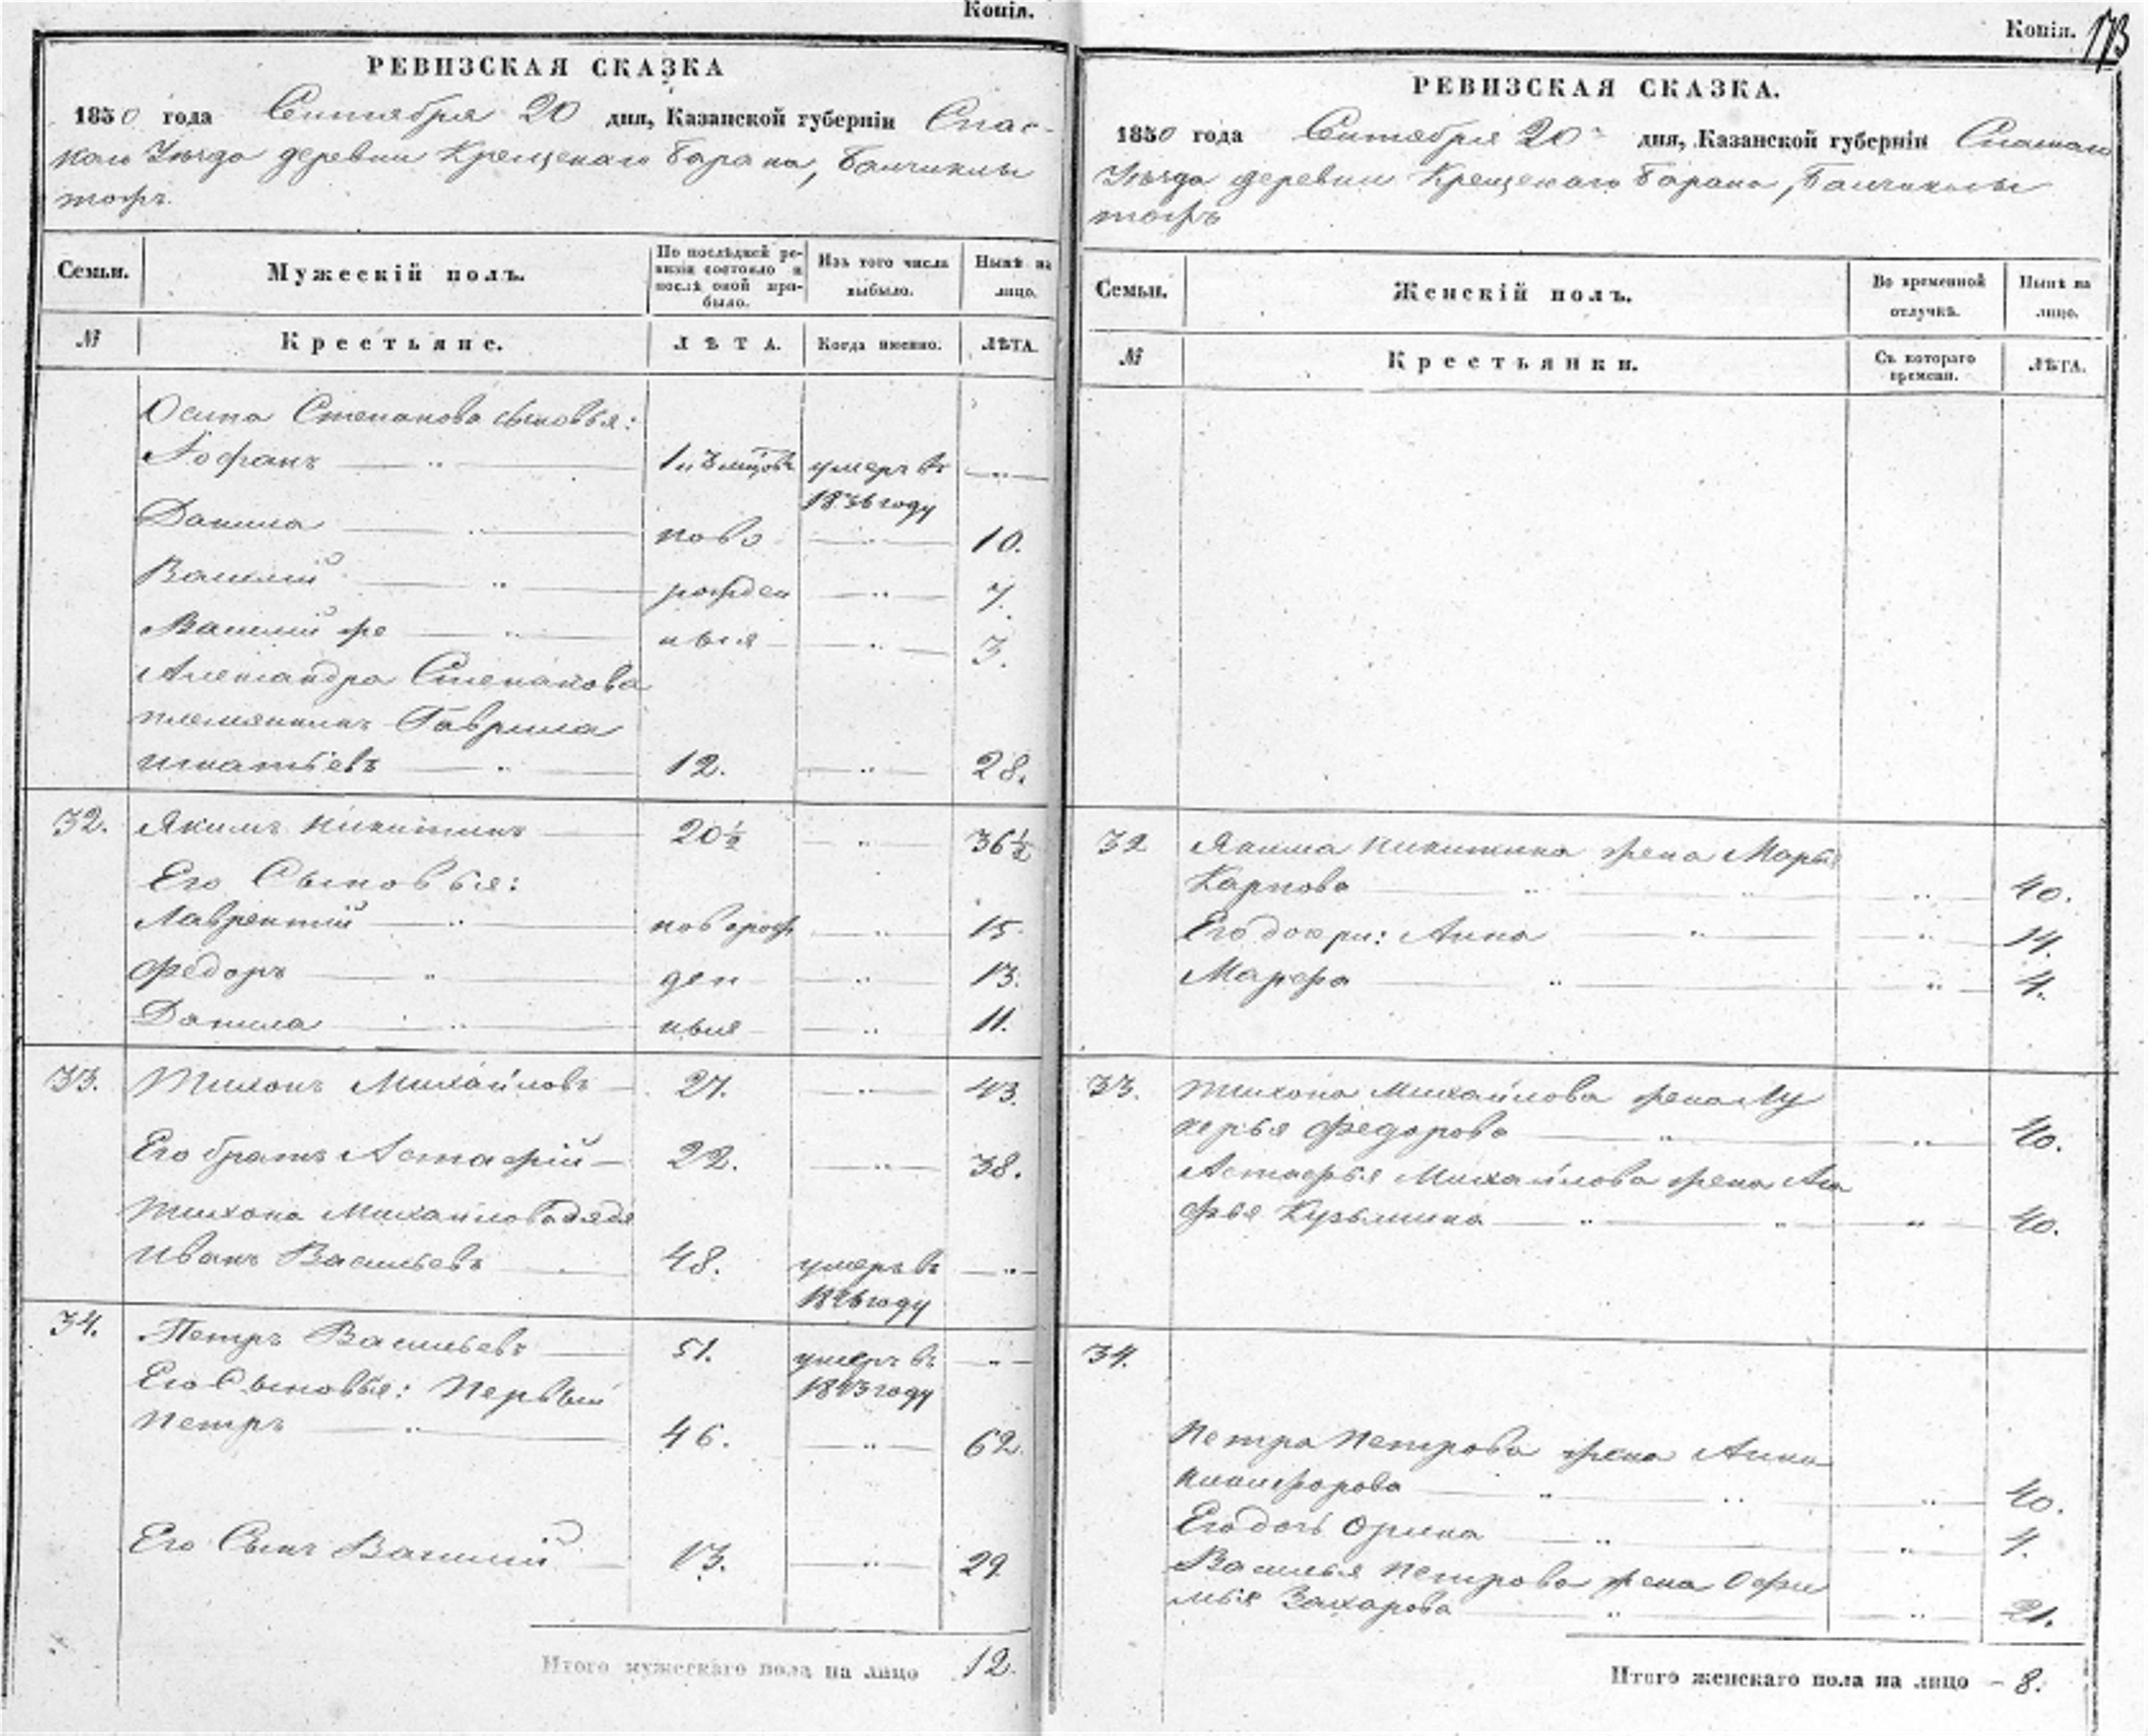 Копія.
РЕВИЗСКАЯ СКАЗКА
1850 года Сентября 20 дня, Казанской губерніи Спас-
каго Уѣзда деревни Крещенаго Барана,
тожъ
Семьи.
Мужескій полъ.
По послѣдней ре-
визіи состояло и
послѣ оной при-
было.
Изъ того числа
выбыло.
Нынѣ на
лицо.
№
Крестьяне.
ЛѢТА.
Когда именно.
ЛѢТА.
Осипа Степанова сыновья:
1 умеръ въ
1836 году
Данила ново 10.
Василій рожден 7.
Василій же ныя 3.
Александра Степанова
племянникъ Гаврила
Игнатьевъ 12. 28.
32. Якимъ Никитинъ 20½ 36½
Его Сыновья:
Лаврентійноворож 15.
Федоръ ден 13.
Данила ныя 11.
33. Тихонъ Михайловъ 27. 43.
Его братъ Астафій 22. 38.
Тихона Михайлова дядя
Иванъ Васильевъ 48. умеръ въ
году
34. Петръ Васильевъ 51. умеръ въ
Его Сыновья: Первый 1843 году
Петръ 46. 62.
Его Сынъ Василій 13. 29
Итого мужескаго пола на лицо 12.
Копія. 173
РЕВИЗСКАЯ СКАЗКА.
1850 года Сентября 20 дня, Казанской губерніи Спаскаго
Уѣзда деревни Крещенаго Барана,
тожъ
Семьи.
Женскій полъ.
Во временной
отлучкѣ.
Нынѣ на
лицо.
№
Крестьянки.
Съ котораго
времени.
ЛѢТА.
32 Якима Никитина жена Марья
Карпова 40.
Его дочери: Анна 14.
Марфа 4.
33. Тихона Михайлова жена Лу
керья Федорова 40.
Астафья Михайлова жена Ага
фья Кузьмина 40.
34.
Петра Петрова жена Анна
Никифорова 40.
Его дочь Орина 4.
Василья Петрова жена Офи
мья Захарова 21.
Итого женскаго пола на лицо 8.